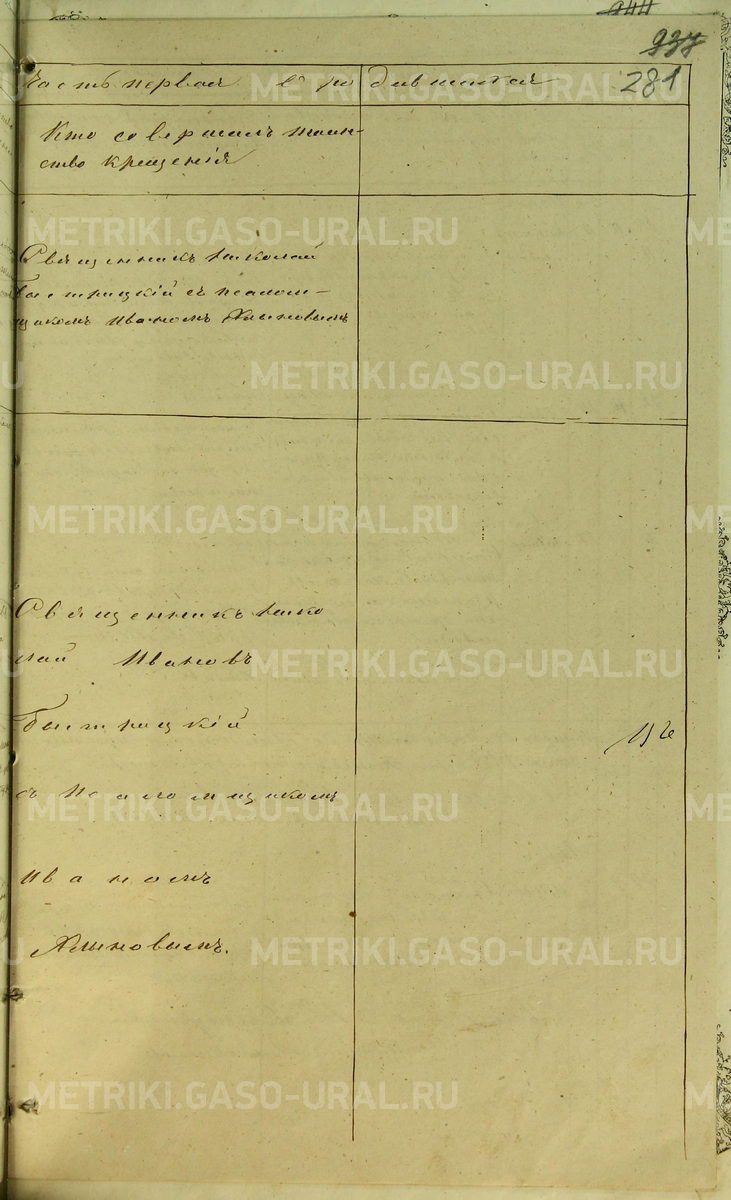 937
281
Часть первая о родившихся
Кто совершалъ таин-
ство крещенія
Священникъ Николай
Быстрицкій съ псалом-
щикомъ Иваномъ Хлыновымъ
Священникъ Нико
лай Ивановъ
Быстрицкій
съ Псаломщикомъ
Иваномъ
Хлыновымъ.
METRIKI.GASO-URAL.RU